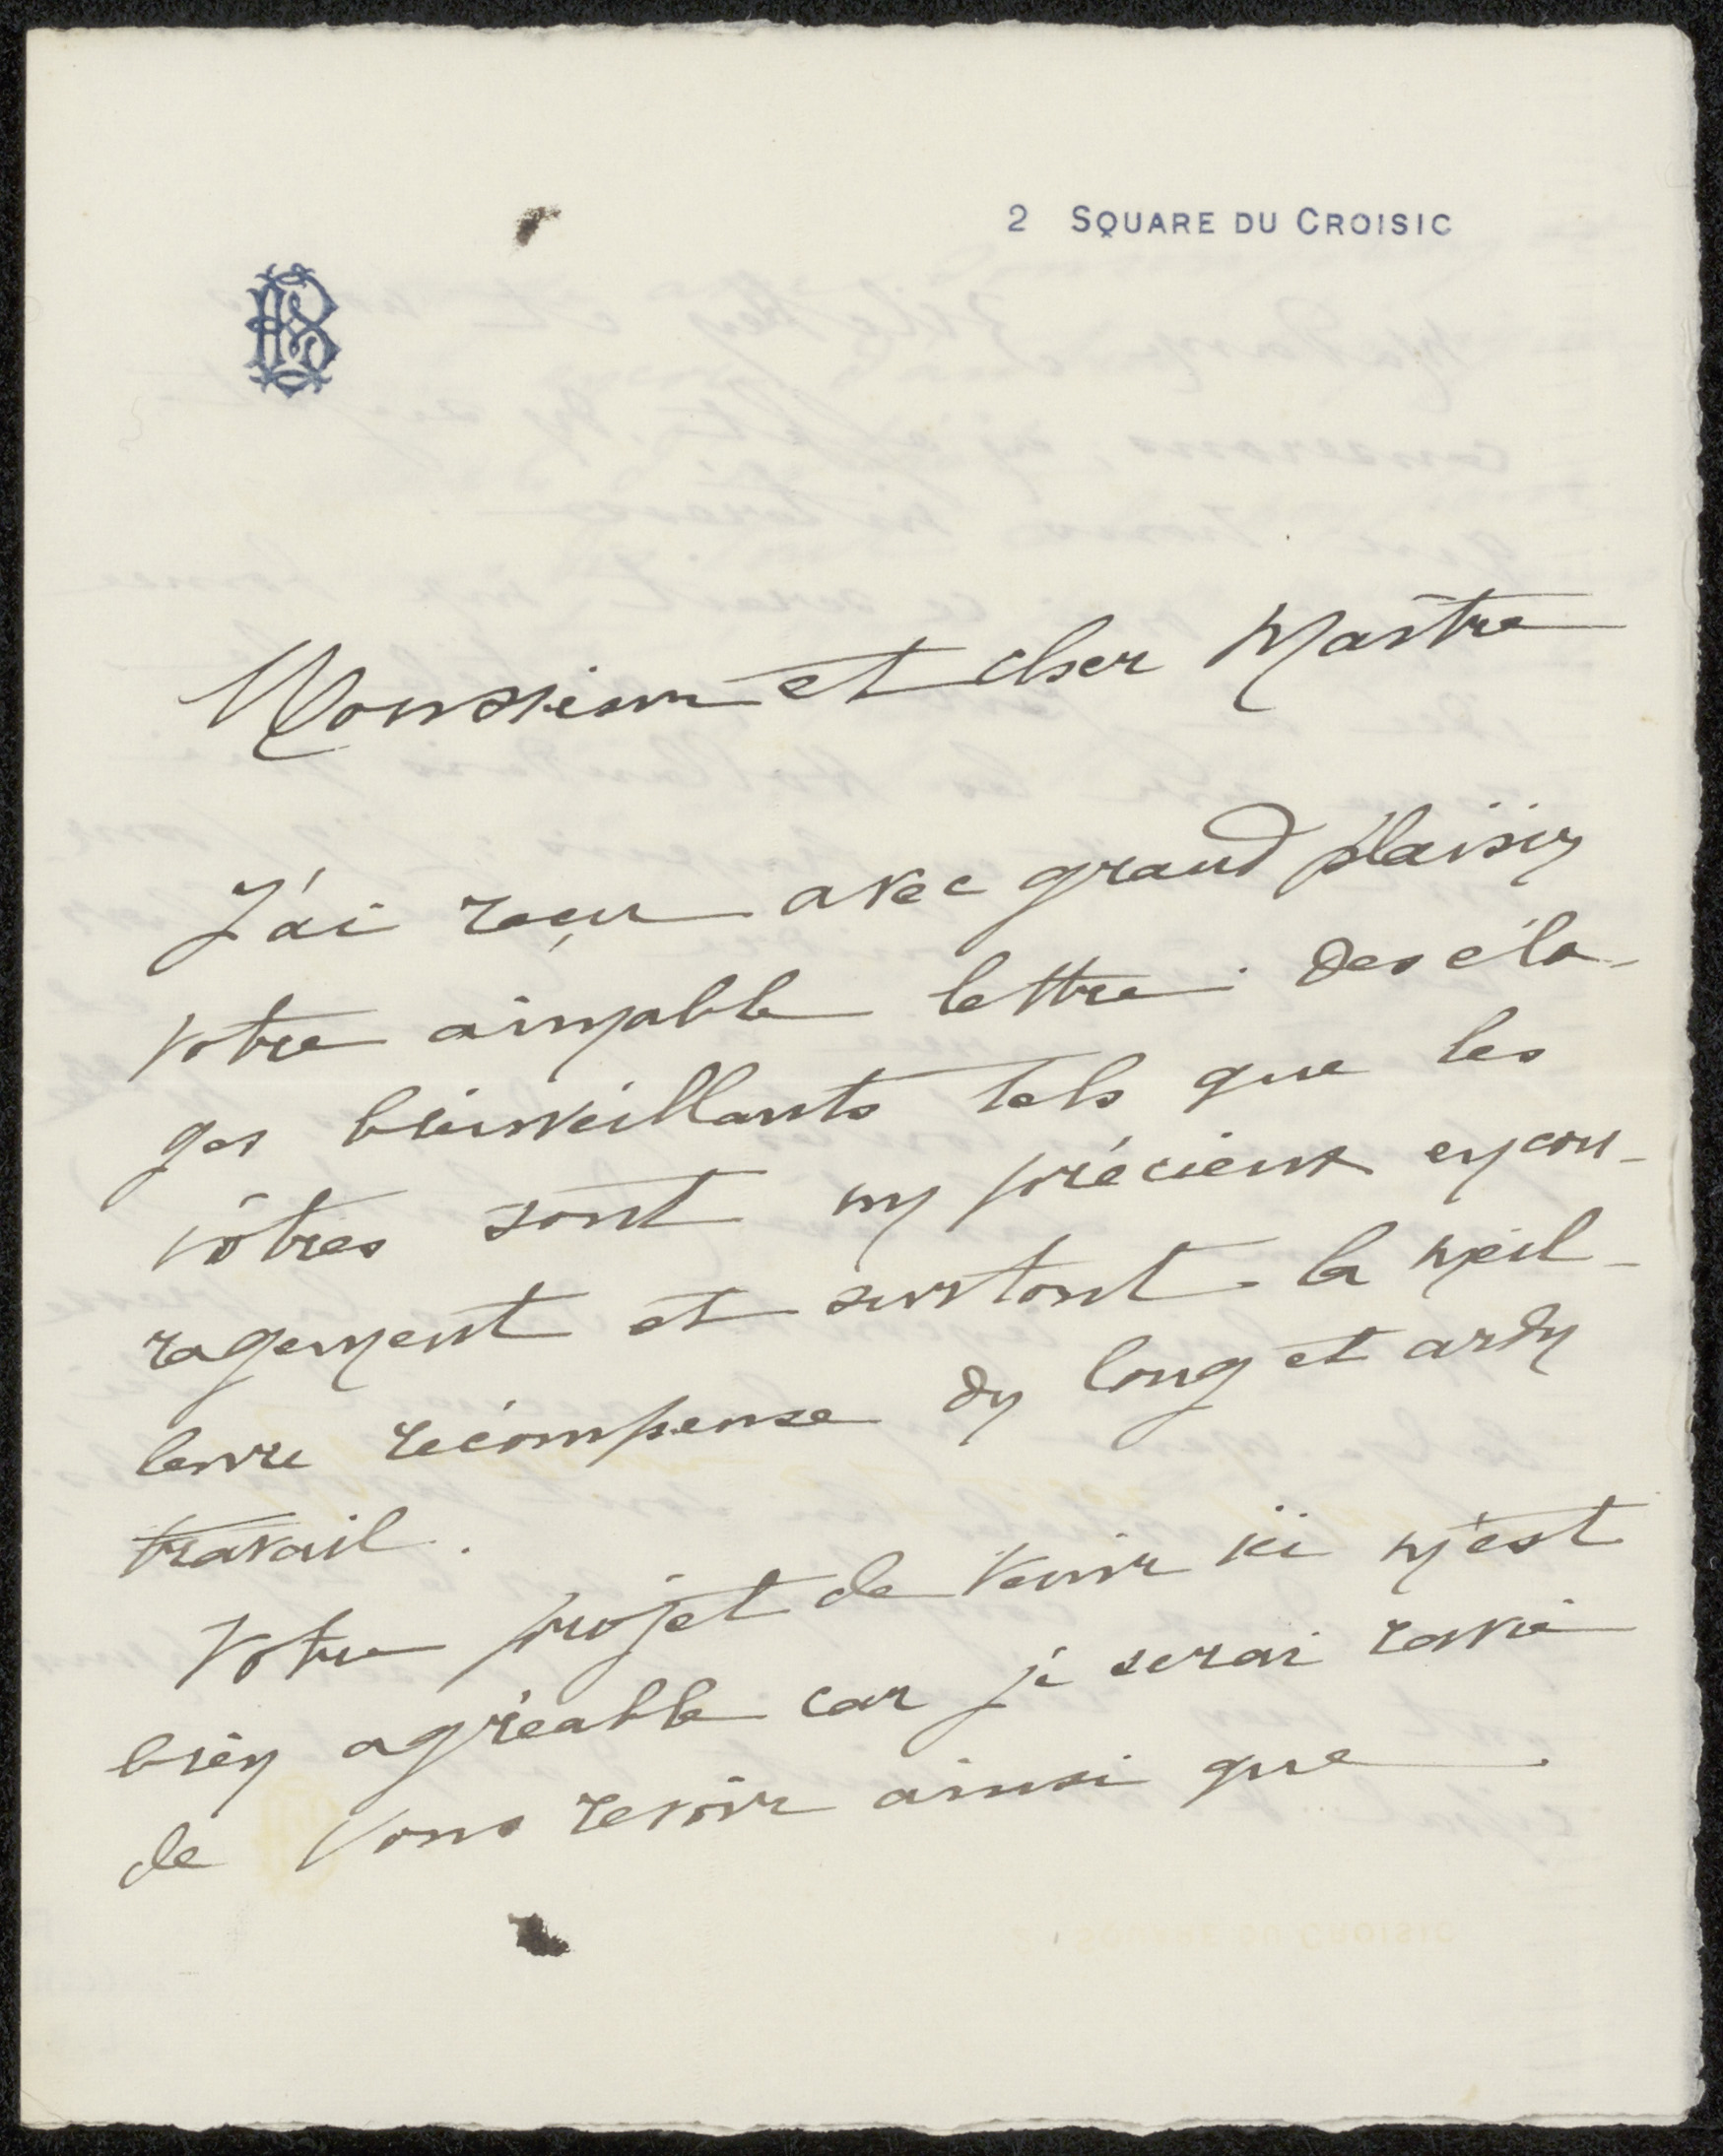 2 SQUARE DU CROISIC
Monsieur et cher Maître
J'ai reçu avec grand plaisir
votre aimable lettre. Des élo-
ges bienveillants tels que les
vôtres sont un précieux encou-
ragement et surtout la meil-
leure récompense du long et ardu
travail.
Votre projet de venir ici m'est
bien agréable car je serai ravie
de vous revoir ainsi que